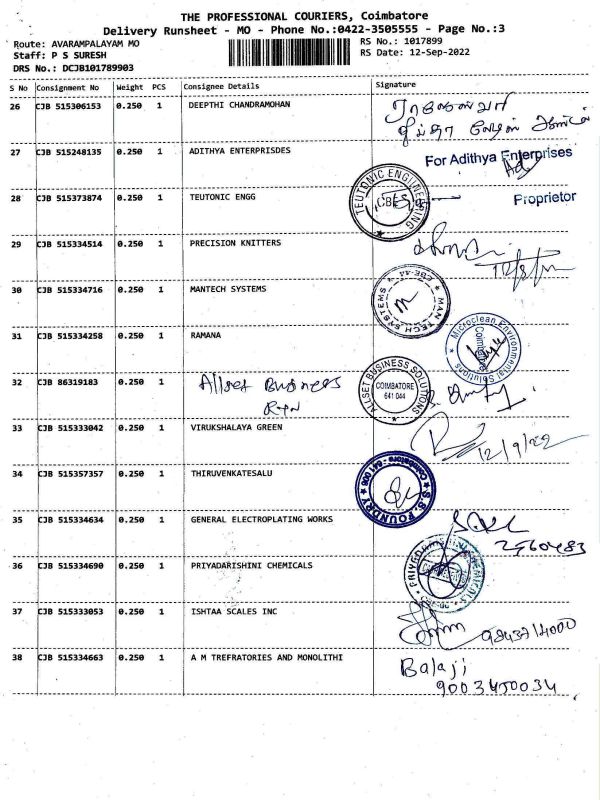 THE PROFESSIONAL COURIERS, Coimbatore
Delivery Runsheet - MO - Phone No.:0422-3505555 - Page No.:3
Route: AVARAMPALAYAM MO
RS No.: 1017899
Staff: P S SURESH
RS Date: 12-Sep-2022
DRS No.: DCJB101789903
S No Consignment No Weight PCS Consignee Details Signature
26 CJB 515306153 0.250 1 DEEPTHI CHANDRAMOHAN
27 CJB 515248135 0.250 1 ADITHYA ENTERPRISDES For Adithya Enterprises
28 CJB 515373874 0.250 1 TEUTONIC ENGG TEUTONIC ENGINEERING CBE Proprietor
29 CJB 515334514 0.250 1 PRECISION KNITTERS
30 CJB 515334716 0.250 1 MANTECH SYSTEMS MAN TECH SYSTEMS CBE-44
31 CJB 515334258 0.250 1 RAMANA Microclean Environmental Solutions Coimbatore
32 CJB 86319183 0.250 1 Allset Business ALLSET BUSINESS SOLUTIONS COIMBATORE 641 044
33 CJB 515333042 0.250 1 VIRUKSHALAYA GREEN 12/9/22
34 CJB 515357357 0.250 1 THIRUVENKATESALU S.S. FOUNDRY Coimbatore - 641 006
35 CJB 515334634 0.250 1 GENERAL ELECTROPLATING WORKS
2560483
36 CJB 515334690 0.250 1 PRIYADARISHINI CHEMICALS
37 CJB 515333053 0.250 1 ISHTAA SCALES INC
38 CJB 515334663 0.250 1 A M TREFRATORIES AND MONOLITHI Balaji
9003450034